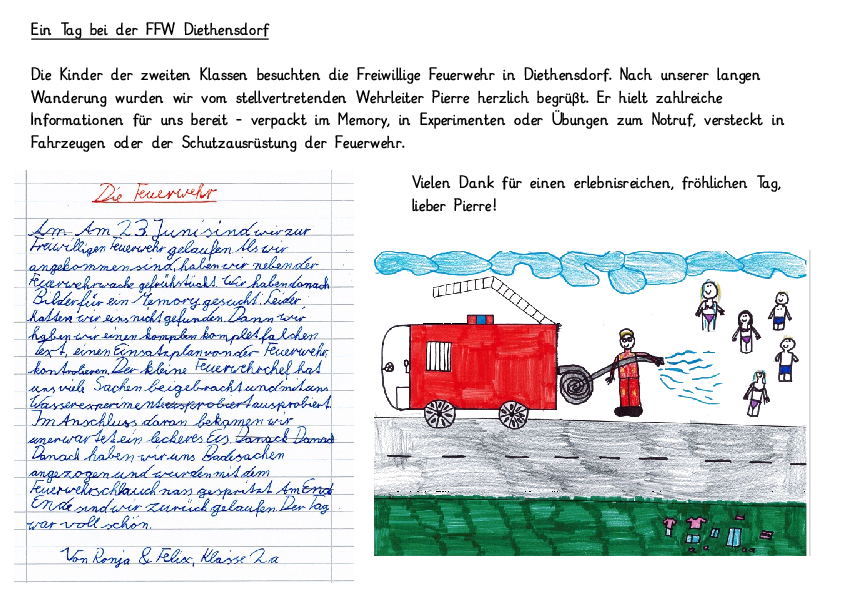 Ein Tag bei der FFW Diethensdorf
Die Kinder der zweiten Klassen besuchten die Freiwillige Feuerwehr in Diethensdorf. Nach unserer langen
Wanderung wurden wir vom stellvertretenden Wehrleiter Pierre herzlich begrüßt. Er hielt zahlreiche
Informationen für uns bereit - verpackt im Memory, in Experimenten oder Übungen zum Notruf, versteckt in
Fahrzeugen oder der Schutzausrüstung der Feuerwehr.
Vielen Dank für einen erlebnisreichen, fröhlichen Tag,
lieber Pierre!
Die Feuerwehr
Am Am 23. Juni sind wir zur
Freiwilligen Feuerwehr gelaufen. Als wir
angekommen sind, haben wir neben der
Feuerwehrwache gefrühstückt. Wir haben danach
Bilder für ein Memory gesucht. Leider
hatten wir eins nicht gefunden. Dann wir
haben wir einen komplett falschen
Text, einen Einsatzplan von der Feuerwehr,
kontrolieren. Der kleine Feuerwehrchel hat
uns viele Sachen beigebracht und mit uns
Wasserexperimente ausprobiert.
Im Anschluss daran bekamen wir
unerwartet ein leckeres Eis. Danach Danach
Danach haben wir uns Badesachen
angezogen und wurden mit dem
Feuerwehrschlauch nass gespritzt. Am Ende
Ende sind wir zurück gelaufen. Der Tag
war voll schön.
Von Ronja & Felix, Klasse 2a